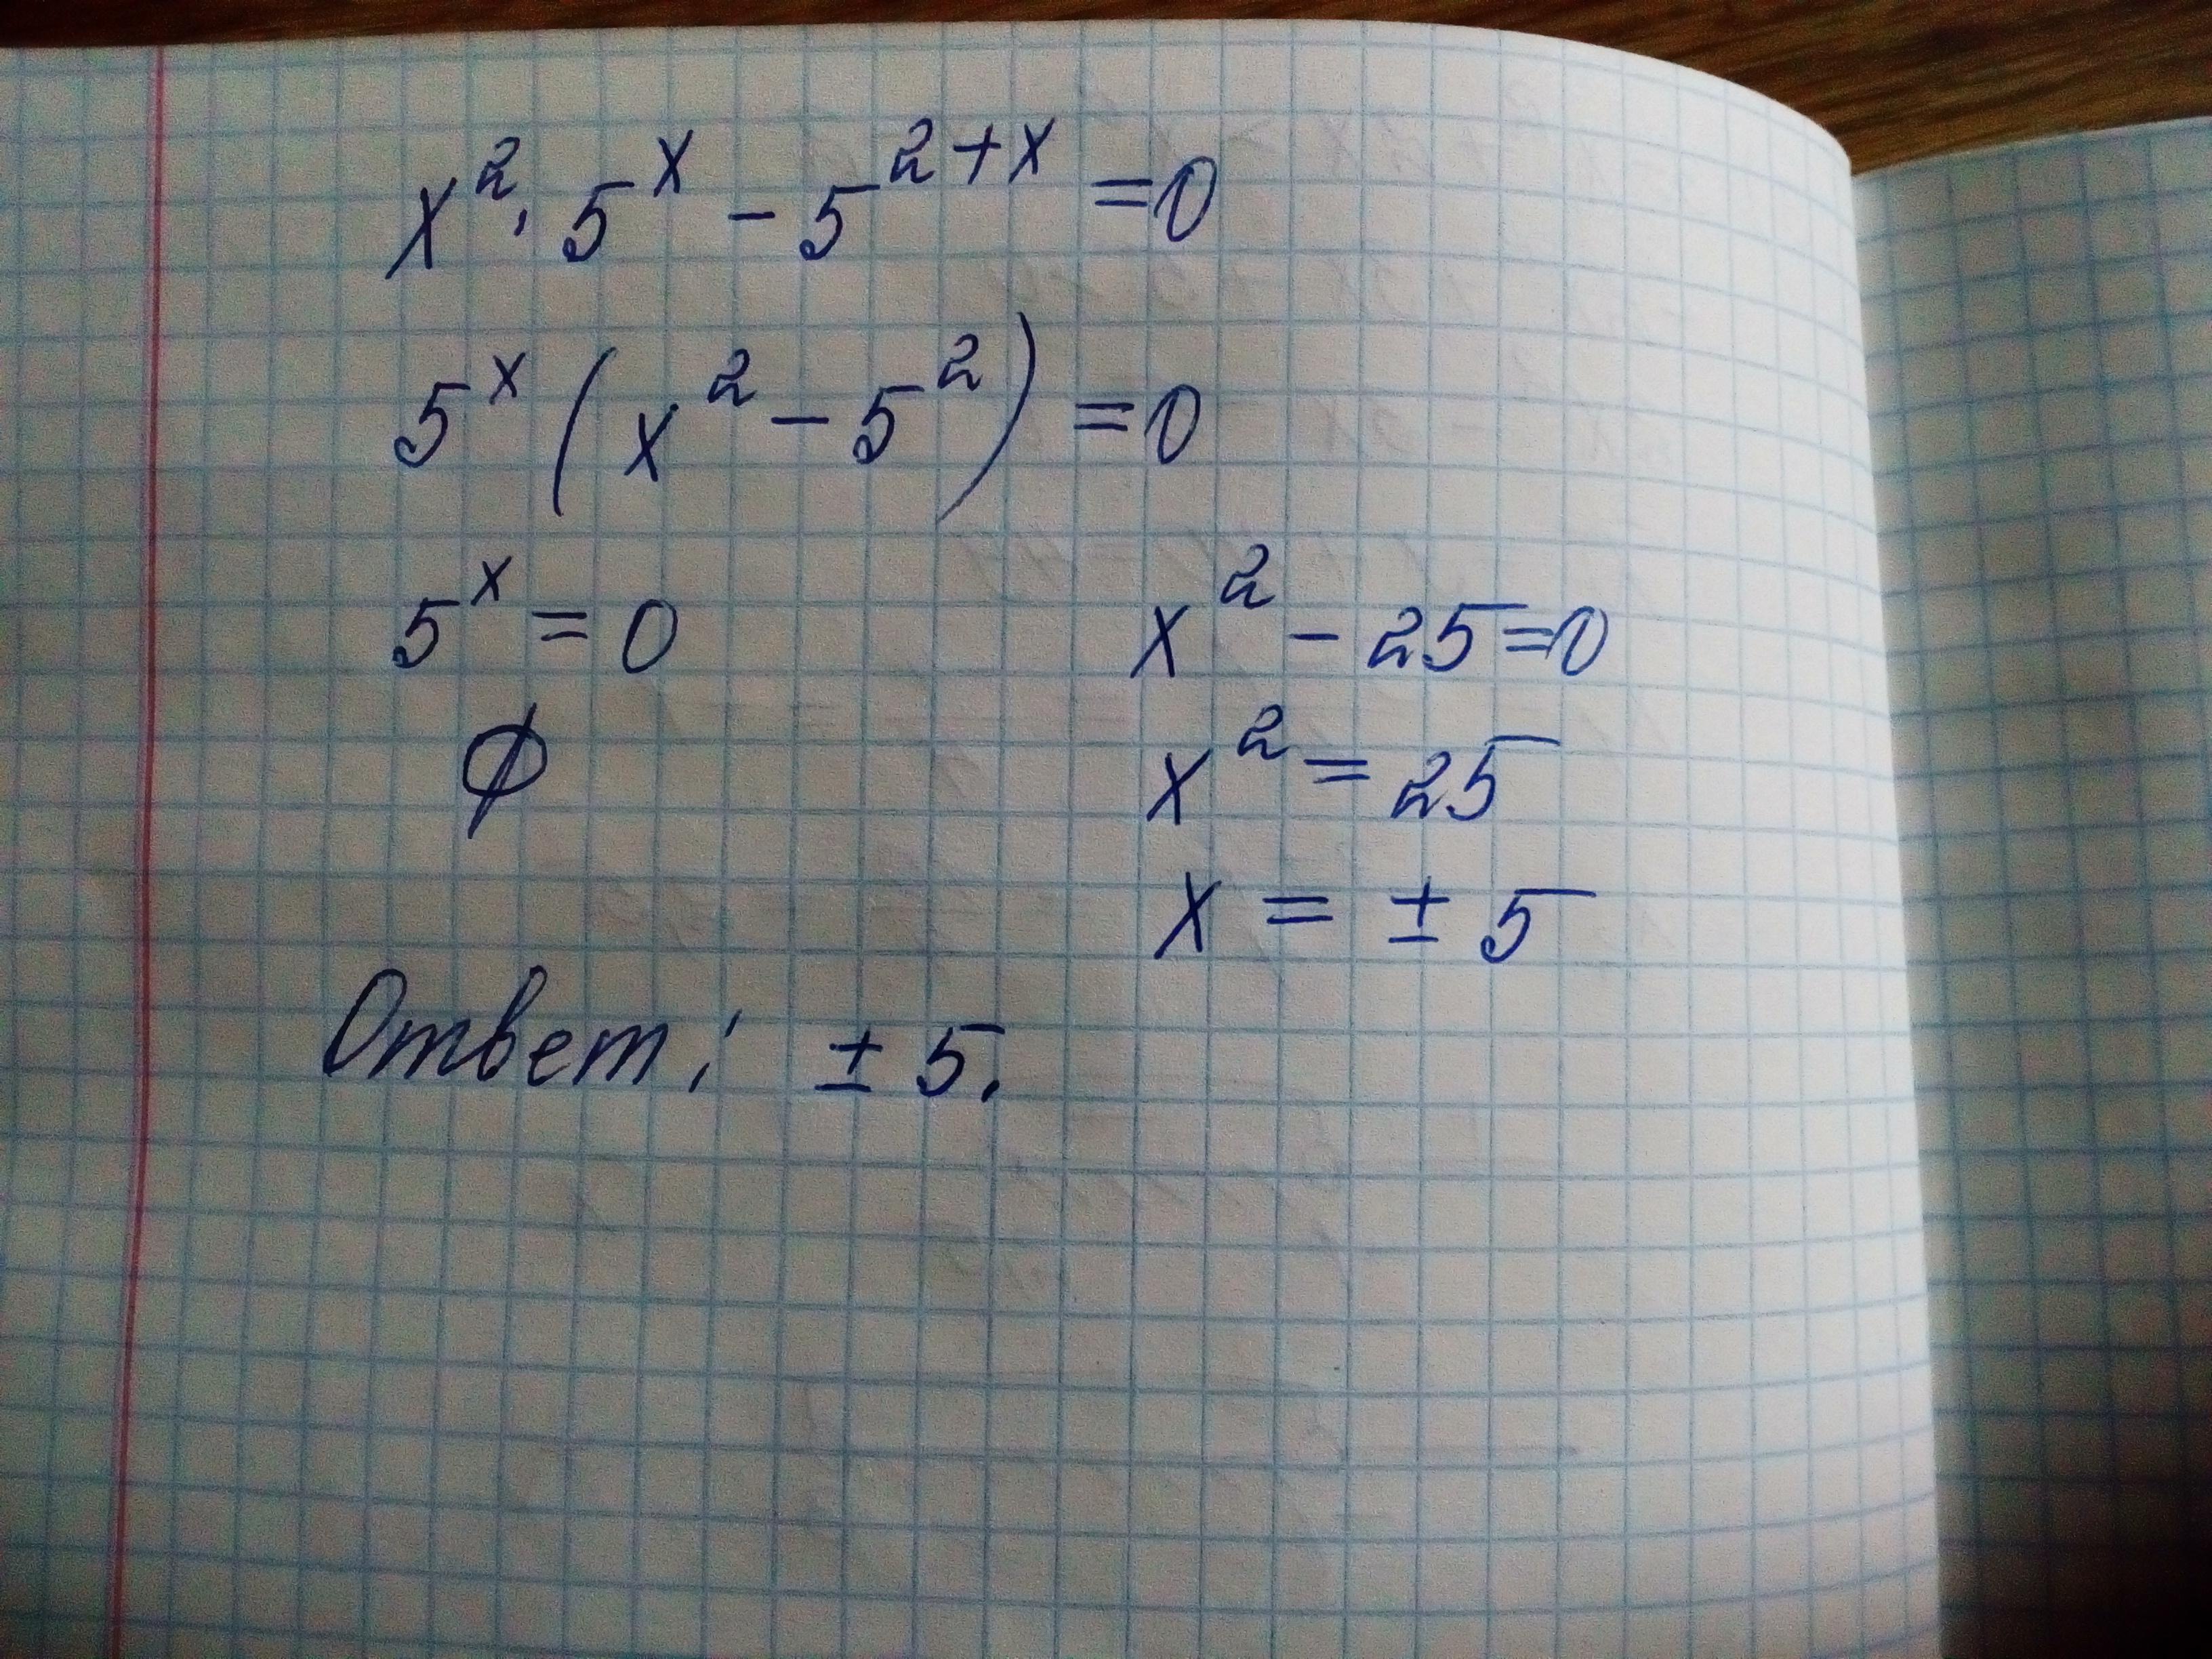 x²· 5ˣ - 5²⁺ˣ = 0
5ˣ (x² - 5²) = 0
5ˣ = 0 x² - 25 = 0
∅ x² = 25
x = ± 5
Ответ: ± 5.